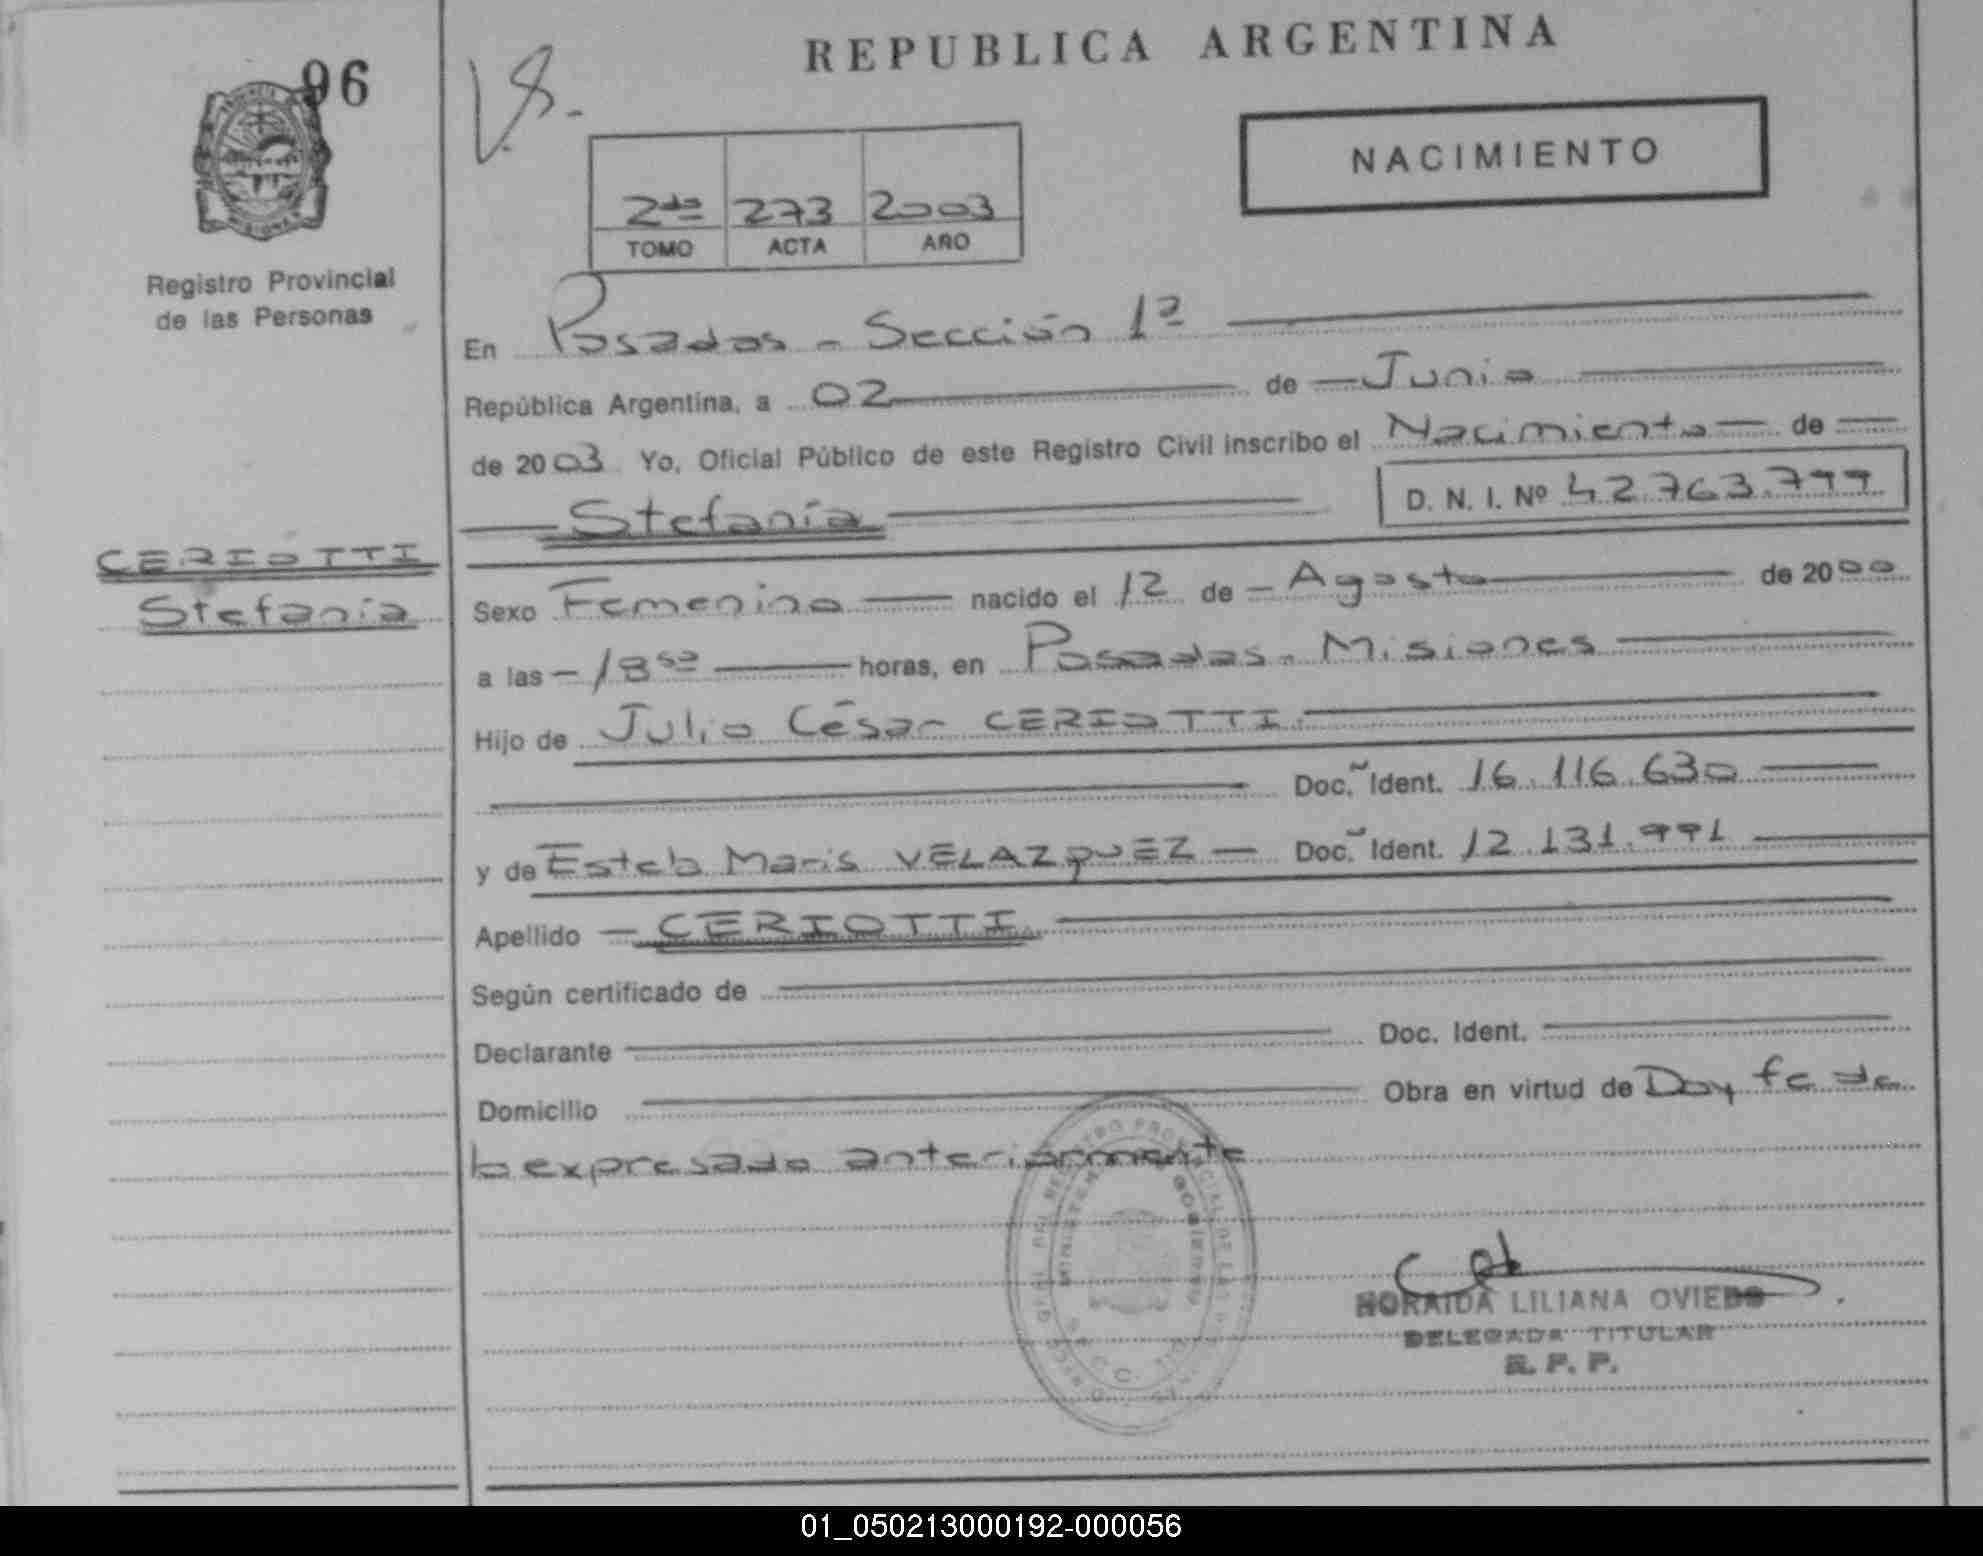 96
REPUBLICA ARGENTINA
NACIMIENTO
2do 273 2003
TOMO ACTA AÑO
Registro Provincial
de las Personas
En Posadas - Sección 1ª
República Argentina, a 02 de Junio
de 2003 Yo, Oficial Público de este Registro Civil inscribo el Nacimiento de
Stefanía D. N. I. Nº 42.763.799
CERIOTTI
Stefanía
Sexo Femenino nacido el 12 de Agosto de 2000
a las 18 50 horas, en Posadas - Misiones
Hijo de Julio César CERIOTTI
Doc. Ident. 16.116.630
y de Estela Maris VELAZQUEZ Doc. Ident. 12.131.991
Apellido CERIOTTI
Según certificado de
Declarante Doc. Ident.
Domicilio Obra en virtud de Doy fe de
lo expresado anteriormente
NORAIDA LILIANA OVIEDO
DELEGADA TITULAR
R. P. P.
01_050213000192-000056